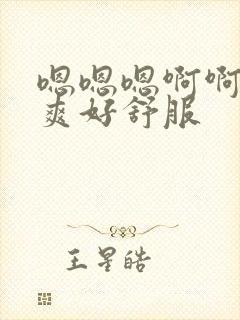 嗯嗯嗯啊啊
爽好舒服
王星皓